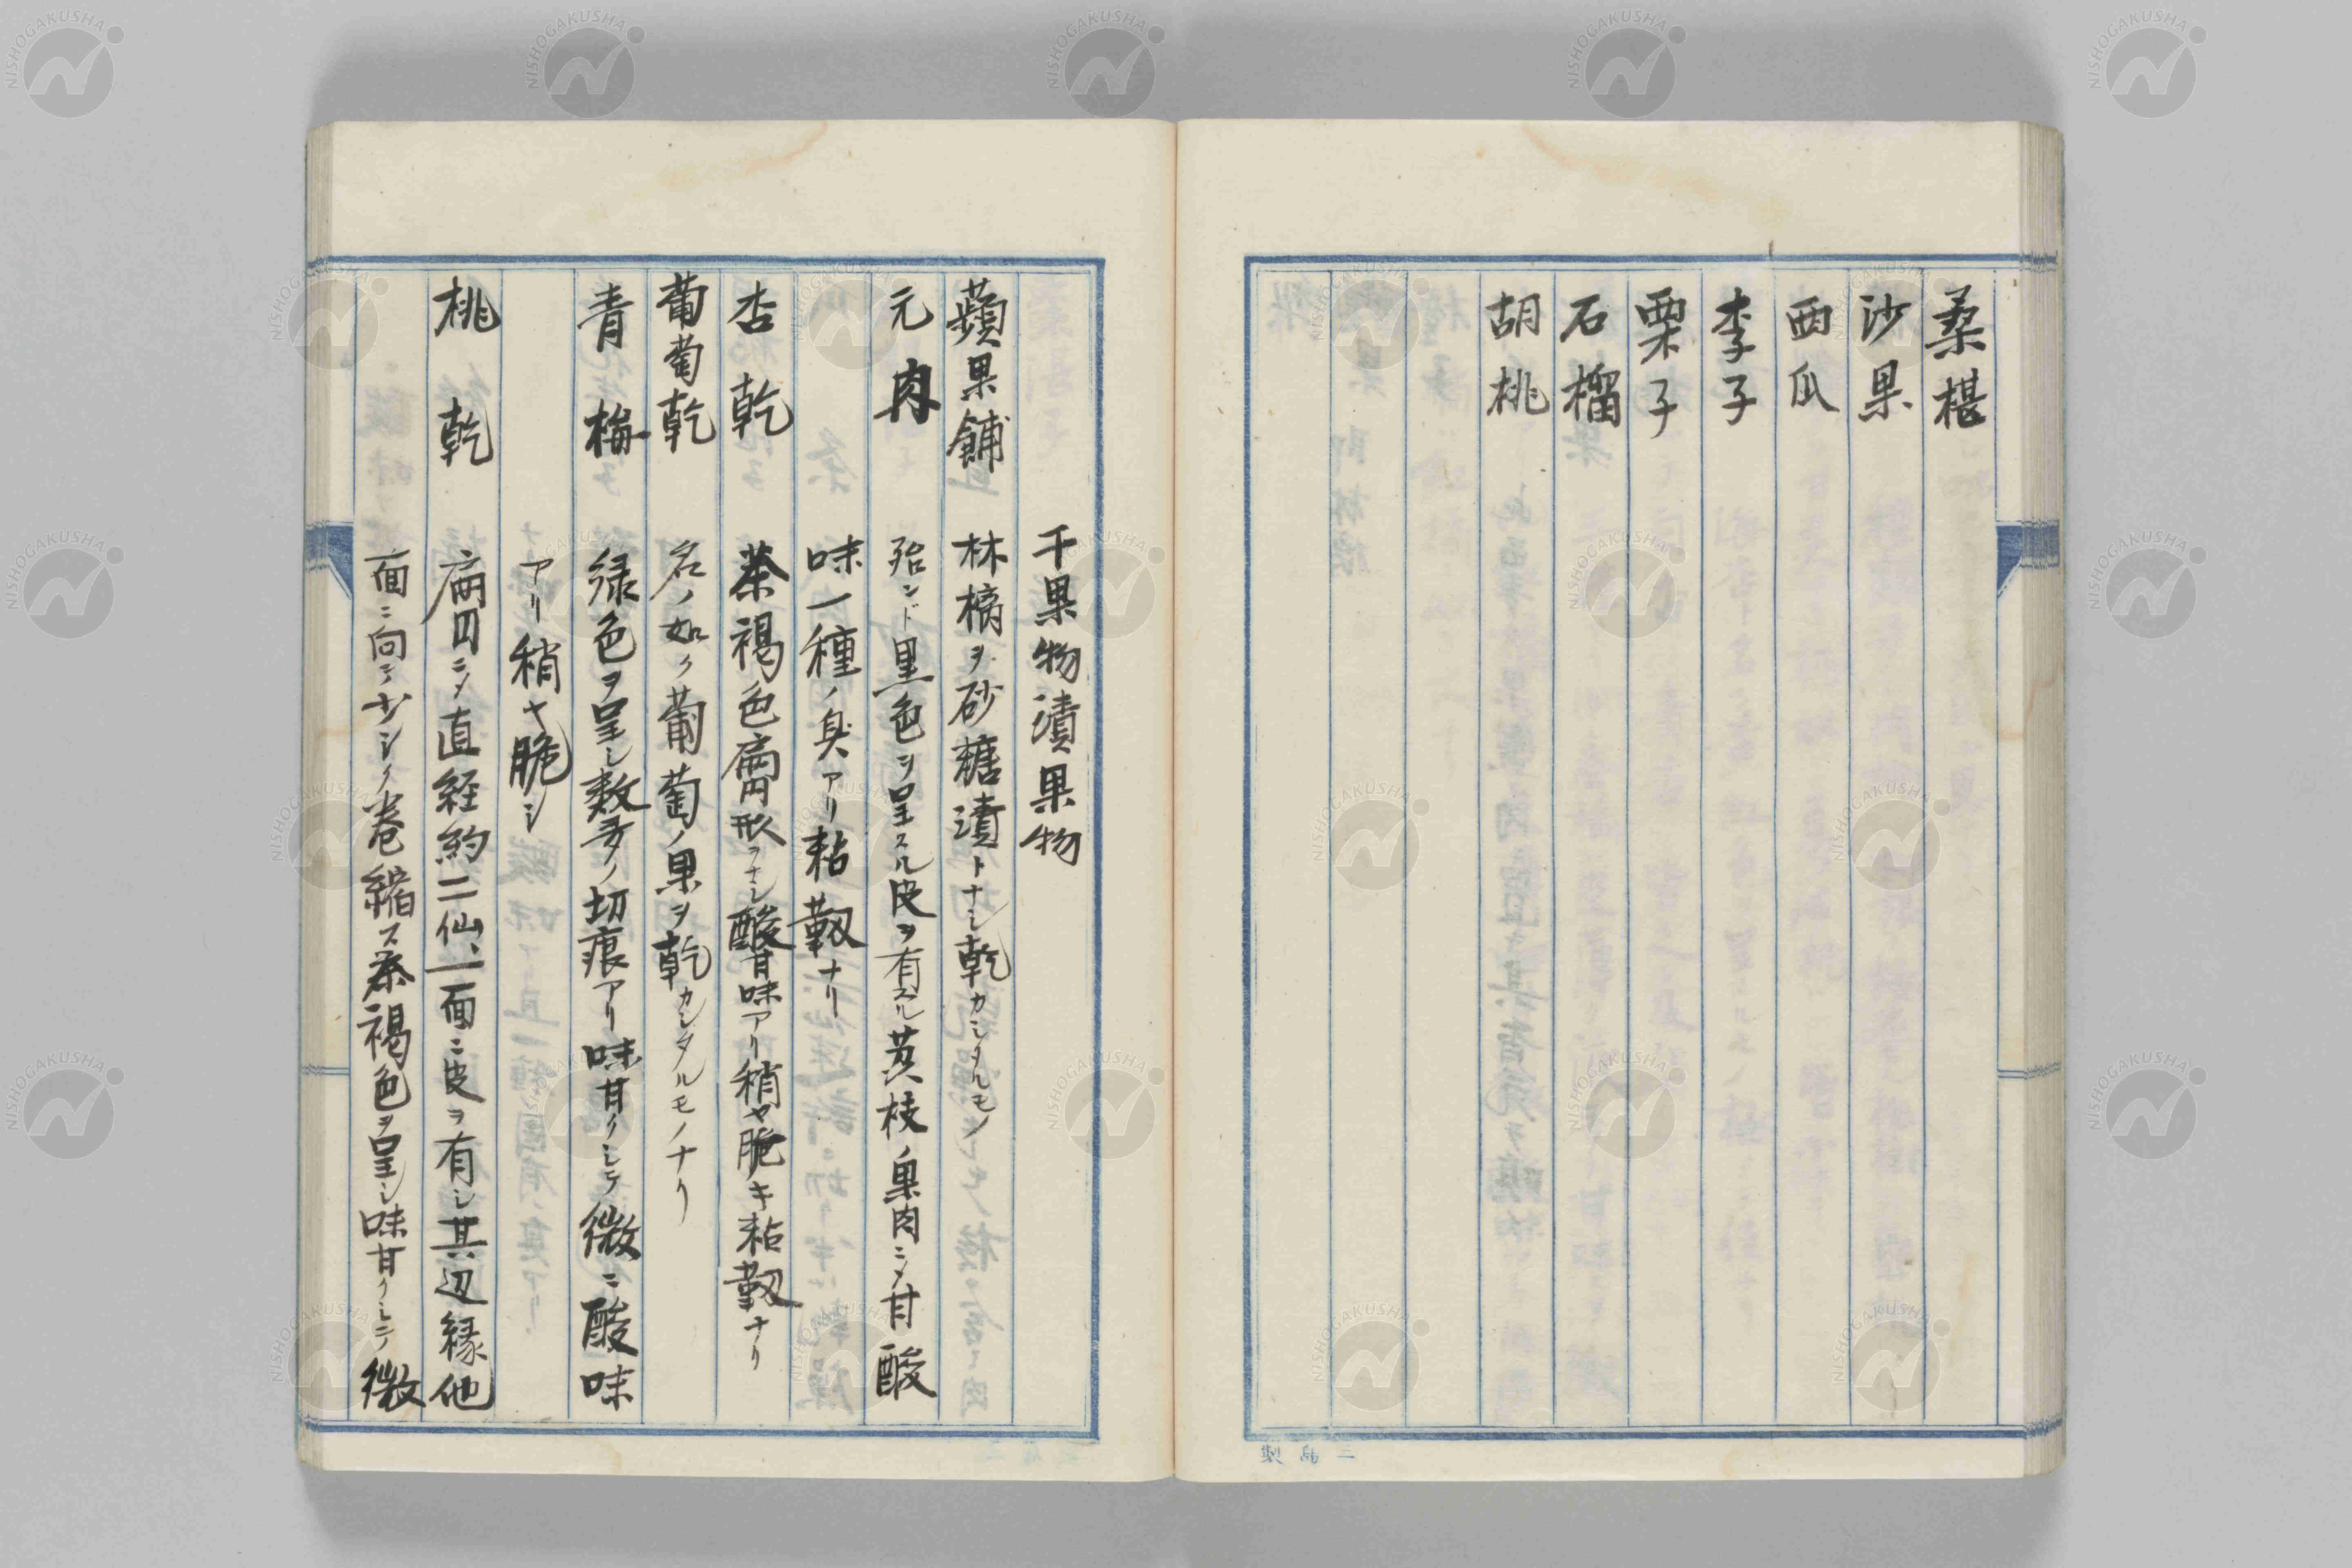 桑椹
沙果
西瓜
李子
栗子
石榴
胡桃
三島製
干果物漬果物
蘋果鋪 林檎ヲ砂糖漬トナシ乾カシタルモノ
元肉 殆ンド黒色ヲ呈スル皮ヲ有スル茘枝ノ果肉ニ〆甘酸
味一種ノ臭アリ粘靱ナリ
杏乾 茶褐色扁円形ヲナシ酸甘味アリ稍ヤ脆キ粘靱ナリ
葡萄乾 名ノ如ク葡萄ノ果ヲ乾カシタルモノナリ
青梅 緑色ヲ呈シ数多ノ切痕アリ味甘クシテ微ニ酸味
アリ稍ヤ脆シ
桃乾 扁円ニ〆直経約二仙、一面ニ皮ヲ有シ其辺縁他
面ニ向ニ少シク巻縮ス茶褐色ヲ呈シ味甘クシテ微
NISHOGAKUSHA